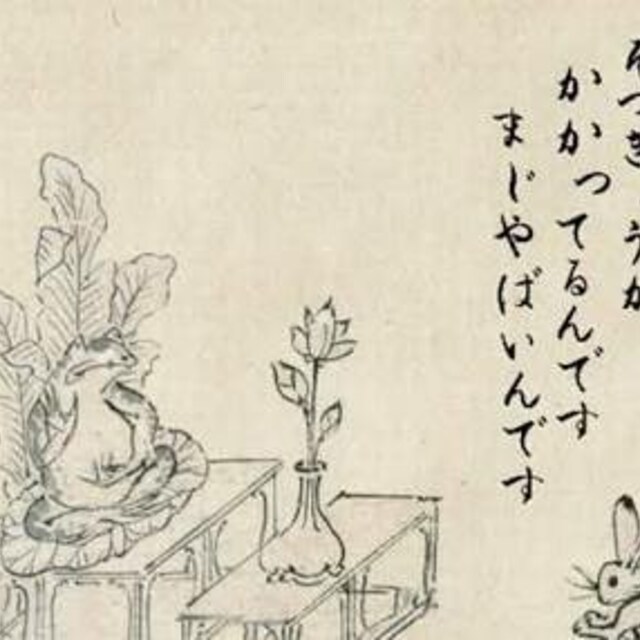 かかってるんです
まじやばいんです